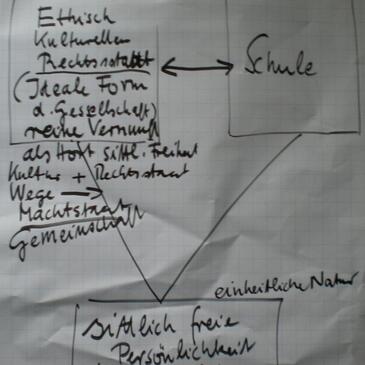 Ethisch
Kulturellen
Rechtsstaat
(Ideale Form
d. Gesellschaft)
reine Vernunft
als Hort sittl. Freiheit
Kultur + Rechtsstaat
Wege →
Machtstaat
Gemeinschaft
Schule
einheitliche Natur
sittlich freie
Persönlichkeit